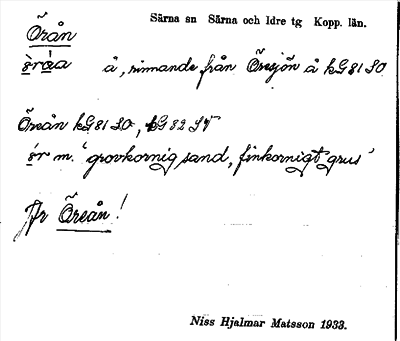 Örån Särna sn Särna och Idre tg Kopp. län.
öråa å, rinnande från Öresjön å kG 81 SO
Öreån kG 81 SO, kG 82 SV
ör m. 'grovkornig sand, finkornigt grus'
Jfr Öreån!
Niss Hjalmar Matsson 1933.